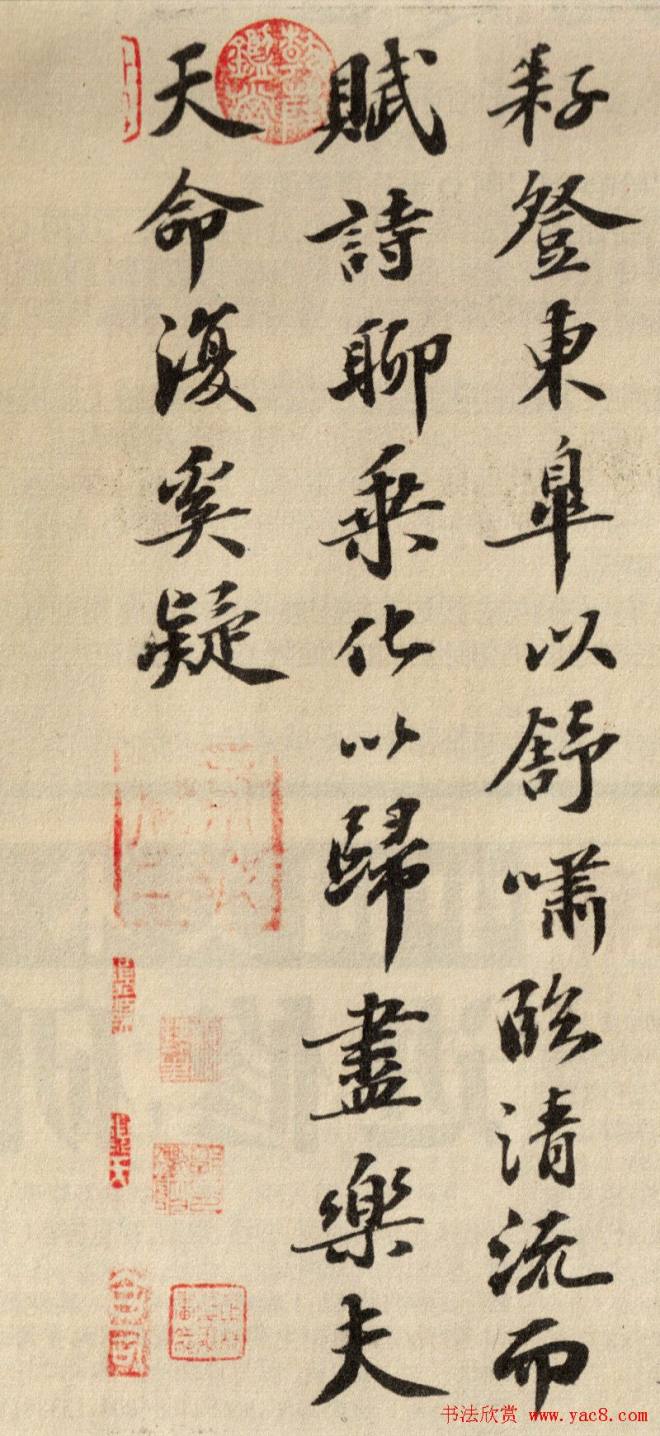 耔登東皐以舒嘯臨清流而
賦詩聊乗化以歸盡樂夫
天命復奚疑
书法欣赏 www.yac8.com